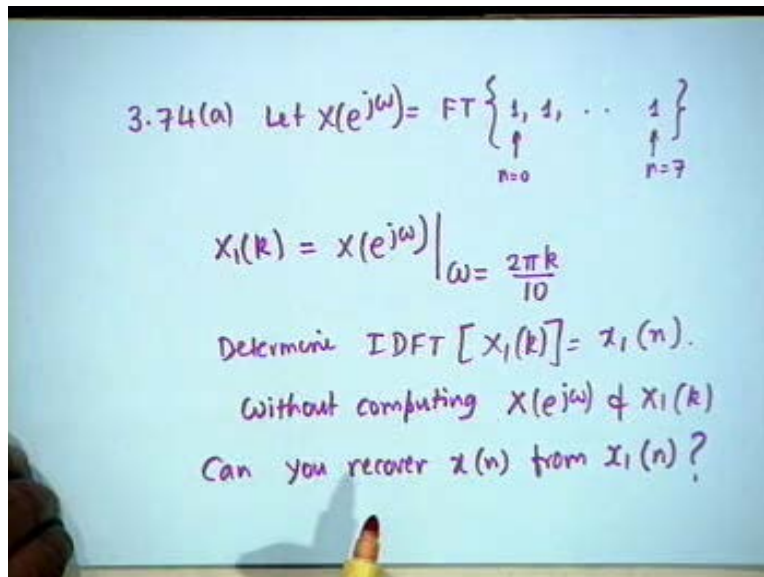 3.74(a) Let X(e^jω) = FT { 1, 1, .. 1 }
↑ n=0 ↑ n=7
X₁(k) = X(e^jω) | ω = 2πk/10
Determine IDFT [X₁(k)] = x₁(n).
Without computing X(e^jω) & X₁(k)
Can you recover x(n) from x₁(n)?